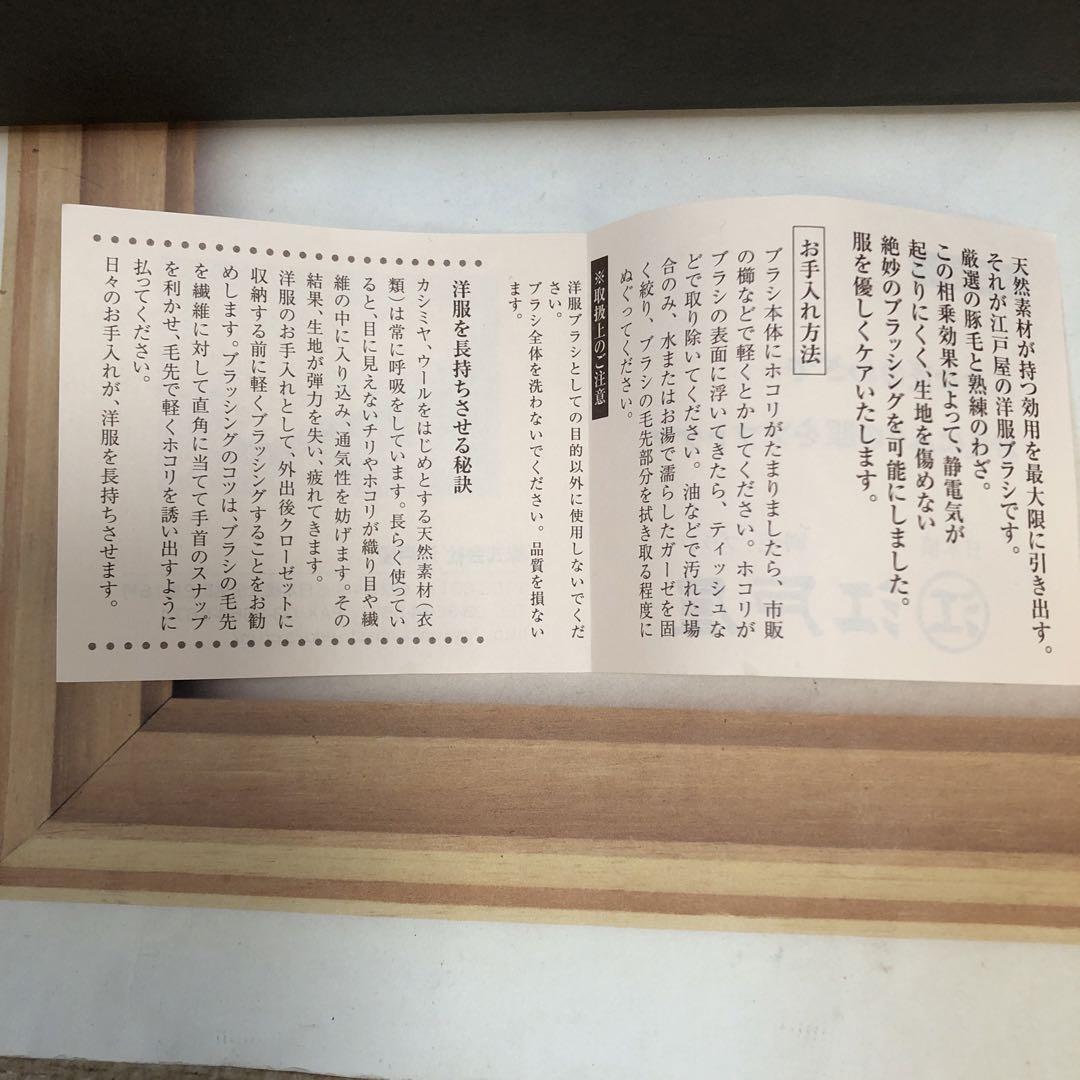 天然素材が持つ効用を最大限に引き出す。
それが江戸屋の洋服ブラシです。
厳選の豚毛と熟練のわざ。
この相乗効果によって、静電気が
起こりにくく、生地を傷めない
絶妙のブラッシングを可能にしました。
服を優しくケアいたします。
お手入れ方法
ブラシ本体にホコリがたまりましたら、市販
の櫛などで軽くとかしてください。ホコリが
ブラシの表面に浮いてきたら、ティッシュな
どで取り除いてください。油などで汚れた場
合のみ、水またはお湯で濡らしたガーゼを固
く絞り、ブラシの毛先部分を拭き取る程度に
ぬぐってください。
※取扱上のご注意
洋服ブラシとしての目的以外に使用しないでくだ
さい。
ブラシ全体を洗わないでください。品質を損ない
ます。
洋服を長持ちさせる秘訣
カシミヤ、ウールをはじめとする天然素材（衣
類）は常に呼吸をしています。長らく使ってい
ると、目に見えないチリやホコリが織り目や繊
維の中に入り込み、通気性を妨げます。その
結果、生地が弾力を失い、疲れてきます。
洋服のお手入れとして、外出後クローゼットに
収納する前に軽くブラッシングすることをお勧
めします。ブラッシングのコツは、ブラシの毛先
を繊維に対して直角に当てて手首のスナップ
を利かせ、毛先で軽くホコリを誘い出すように
払ってください。
日々のお手入れが、洋服を長持ちさせます。